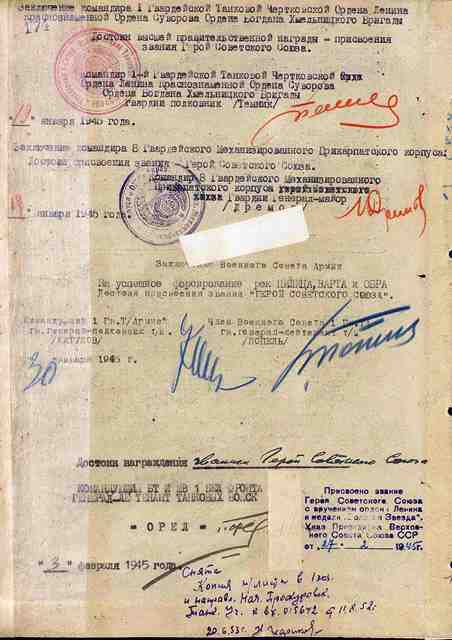 Заключение командира 1 Гвардейской Танковой Чертковской Ордена Ленина
Краснознаменной Ордена Суворова Ордена Богдана Хмельницкого Бригады
Достоин высшей правительственной награды - присвоения
звания Герой Советского Союза.
Командир 1-й Гвардейской Танковой Чертковской
Ордена Ленина Краснознаменной Ордена Суворова
Ордена Богдана Хмельницкого Бригады
Гвардии полковник /Темник/
января 1945 года.
Заключение командира 8 Гвардейского Механизированного Прикарпатского корпуса:
Достоин присвоения звания Герой Советского Союза.
Командир 8 Гвардейского Механизированного
Прикарпатского корпуса
Гвардии Генерал-майор
/Дремов/
января 1945 года.
Заключение Военного Совета Армии
За успешное форсирование рек ПИЛИЦА, ВАРТА и ОБРА
Достоин присвоения звания "ГЕРОЙ СОВЕТСКОГО СОЮЗА".
Командующий 1 Гв.Т/Армией Член Военного Совета 1
гв.генерал-полковник т/в. гв.генерал-лейтенант т/в
/КАТУКОВ/ /ПОПЕЛЬ/
30 января 1945 г.
Достоин награждения званием Герой Советского Союза
КОМАНДУЮЩИЙ БТ и МВ 1 БЕЛ ФРОНТА
ГЕНЕРАЛ-ЛЕЙТЕНАНТ ТАНКОВЫХ ВОЙСК
- ОРЕЛ -
"3" февраля 1945 года.
Присвоено звание
Героя Советского Союза
с вручением ордена Ленина
и медали "Золотая Звезда".
Указ Президиума Верхов-
ного Совета Союза ССР
от 27. 2 1945г.
Снята
Копия н/листа в 1 экз.
и направ. Нач.
11.8.52г.
20.6.53г.